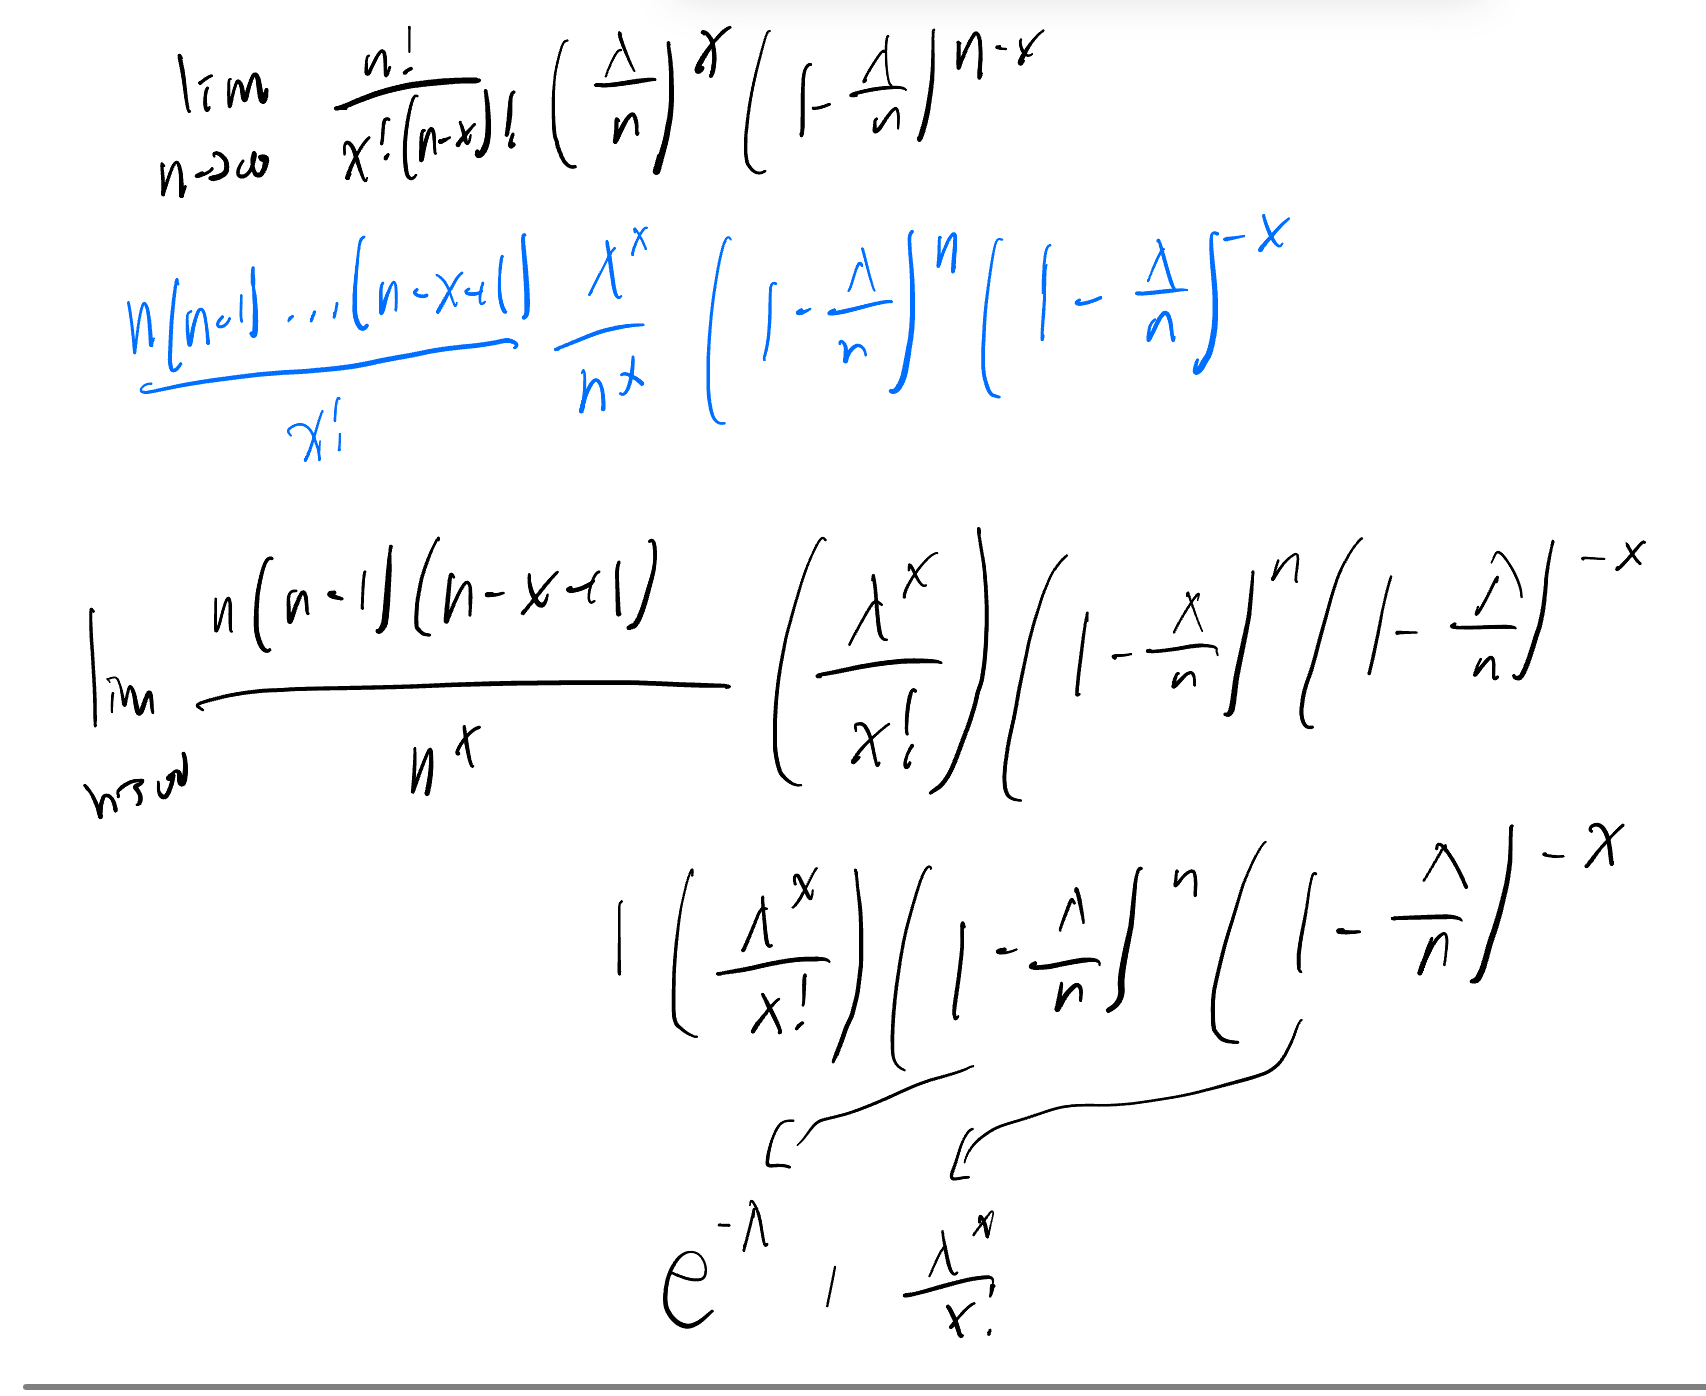 lim n→∞ n!/(x!(n-x)!) (λ/n)^x (1-λ/n)^(n-x)
n(n-1)...(n-x+1)/x! λ^x/n^x (1-λ/n)^n (1-λ/n)^(-x)
lim n→∞ n(n-1)(n-x+1)/n^x (λ^x/x!) (1-λ/n)^n (1-λ/n)^(-x)
1 (λ^x/x!) (1-λ/n)^n (1-λ/n)^(-x)
e^(-λ) 1 λ^x/x!